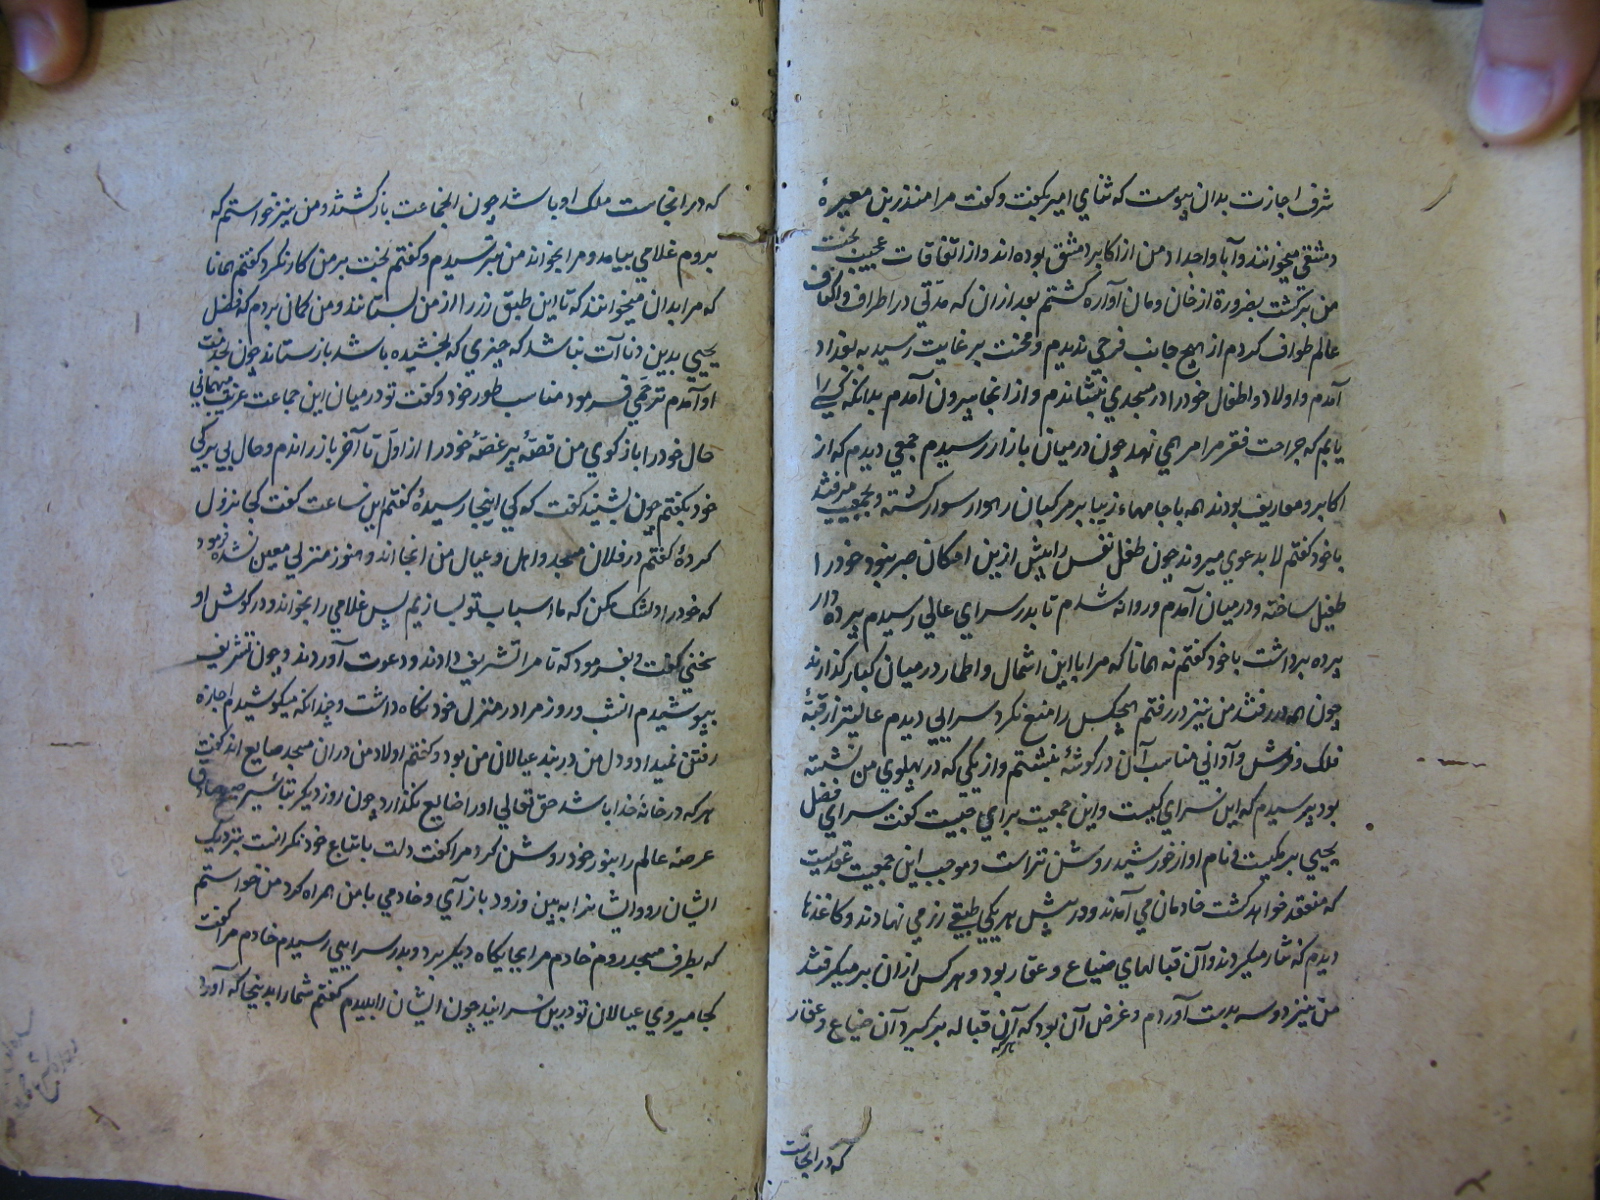 شرف اجازت بدان پیوست که ثنای امیر بگفت و گفت مرا منذر بن مغیرهٔ
دمشقی میخوانند و آبا و اجداد من از اکابر دمشق بوده اند و از اتفاقات عجیب بخت
من برکشت بضرورة از خان و مان آواره کشتم بعد ازان که مدتی در اطراف و اکناف
عالم طواف کردم از هیچ جانب فرجی ندیدم و محنت بر غایت رسید به بغداد
آمدم و اولاد و اطفال خود را در مسجدی بنشاندم و از انجا بیرون آمدم بدانکه کسی را
یابم که جراحت فقر مرا مرهمی نهد چون در میان بازار رسیدم جمعی دیدم که از
اکابر و معاریف بودند همه با جامهاء زیبا بر مرکبان راهوار سوار کشته و بجمعیت میرفتند
با خود کفتم لا بد بدعوی میروند چون طفل نفس را بیش ازین امکان صبر نبود خود را
طفیل ساخته و در میان آمدم و روانه شدم تا بدر سرای عالی رسیدم پرده دار
پرده برداشت با خود کفتم نه همانا که مرا با این اشمال و اطمار در میان کبار گذارند
چون همه در رفتند من نیز در رفتم هیچکس را منع نکرد سرایی دیدم عالیتر از قبهٔ
فلک و فرش و آوانی مناسب آن در کوشهٔ بنشستم و از یکی که در پهلوی من نشسته
بود پرسیدم که این سرای کیست و این جمعیت برای چیست کفت سرای فضل
یحیی برمکیست نام او از خورشید روشن تر است و موجب این جمعیت عقدیست
که منعقد خواهد کشت خادمان می آمدند و در پیش هر یکی طبقی زر می نهادند و کاغذها
دیدم که نثار میکردند و آن قبالهای ضیاع و عقار بود و هر کس ازان بر میکرفتند
من نیز دو سه بدست آوردم و غرض آن بود که هر که آن قباله بر کیرد آن ضیاع و عقار
که در انجاست
که در انجاست ملک او باشد چون الجماعت باز کشتند و من نیز خواستم که
بروم غلامی بیامد و مرا بخواند من بترسیدم و کفتم بخت بر من کار نکرد کفتم همانا
که مرا بدان میخوانند که تا این طبق زر را از من بستانند و من کمان بردم که فضل
یحیی بدین دناآت نباشد که چیزی که بخشیده باشد باز ستاند چون بخدمت
او آمدم ترحمی فرمود مناسب طور خود و کفت تو در میان این جماعت غریب مهمانی
حال خود را باز کوی من قصّهٔ پر غصّهٔ خود را از اول تا آخر باز راندم و حال بی برکی
خود بکفتم چون بشنید کفت که کی اینجا رسیدهٔ کفتم این ساعت کفت کجا نزول
کردهٔ کفتم در فلان مسجد و اهل و عیال من انجا اند و هنوز منزلی معین نشده فرمود
که خود را مکن که ما اسباب تو بسازیم پس غلامی را بخواند و در کوش او
سخنی کفت بفرمود که تا مرا تشریف دادند و دعوت آوردند و چون تشریف
بپوشیدم انشب و روز مرا در منزل خود نکاه داشت و چندانکه میکوشیدم اجازهٔ
رفتن نمیداد و دل من در بند عیالان من بود و کفتم اولاد من دران مسجد ضایع اند کفت
هر که در خانهٔ خدا باشد حق تعالی او را ضایع نکذارد چون روز دیکر تباشیر صبح صادق
عرصهٔ عالم را بنور خود روشن کرد مرا کفت دلت باتباع خود نکرانست بنزدیک
ایشان رو و ایشانرا به بین و زود باز آی و خادمی با من همراه کرد من خواستم
که بطرف مسجد روم خادم مرا بجایکاه دیکر برد و بدر سرایی رسیدم خادم مرا کفت
کجا میروی عیالان تو درین سرایند چون ایشان را بدیدم کفتم شما را بدینجا که آورد